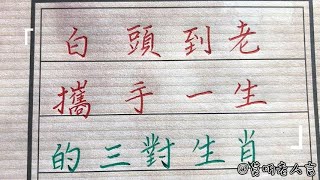 「白頭到老
攜手一生
的三對生肖」